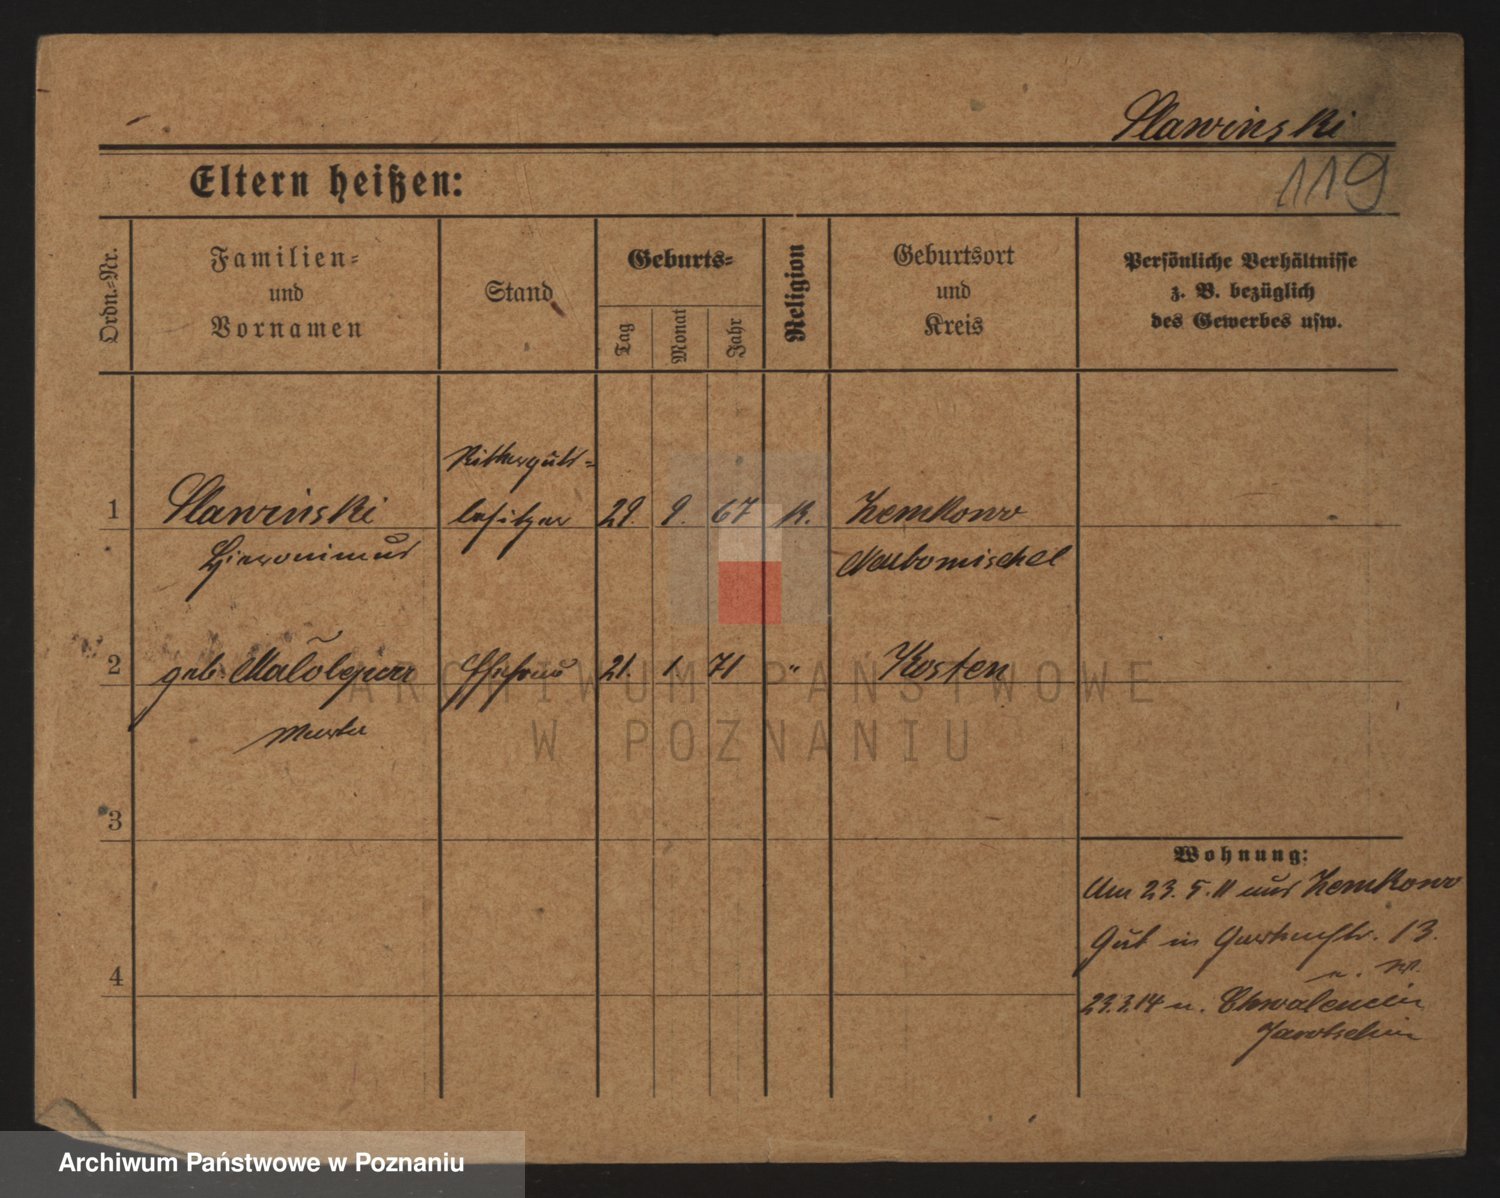 Slawinski
119
Eltern heißen:
Ordn.-Nr.
Familien-
und
Vornamen
Stand
Geburts-
Tag
Monat
Jahr
Religion
Geburtsort
und
Kreis
Persönliche Verhältnisse
z. B. bezüglich
des Gewerbes usw.
Ritterguts-
1 Slawinski besitzer 29. 9. 67 K. Zemkowo
Hieronimus Neutomischel
2 geb. Ehefrau 21. 1. 71 " Kosten
3
4
Wohnung:
Am 23. 5. 11 aus Zemkowo
Gut in Gartenstr. 13.
n. W.
23.3.14 n.
Jarotschin
ARCHIWUM PAŃSTWOWE
W POZNANIU
Archiwum Państwowe w Poznaniu